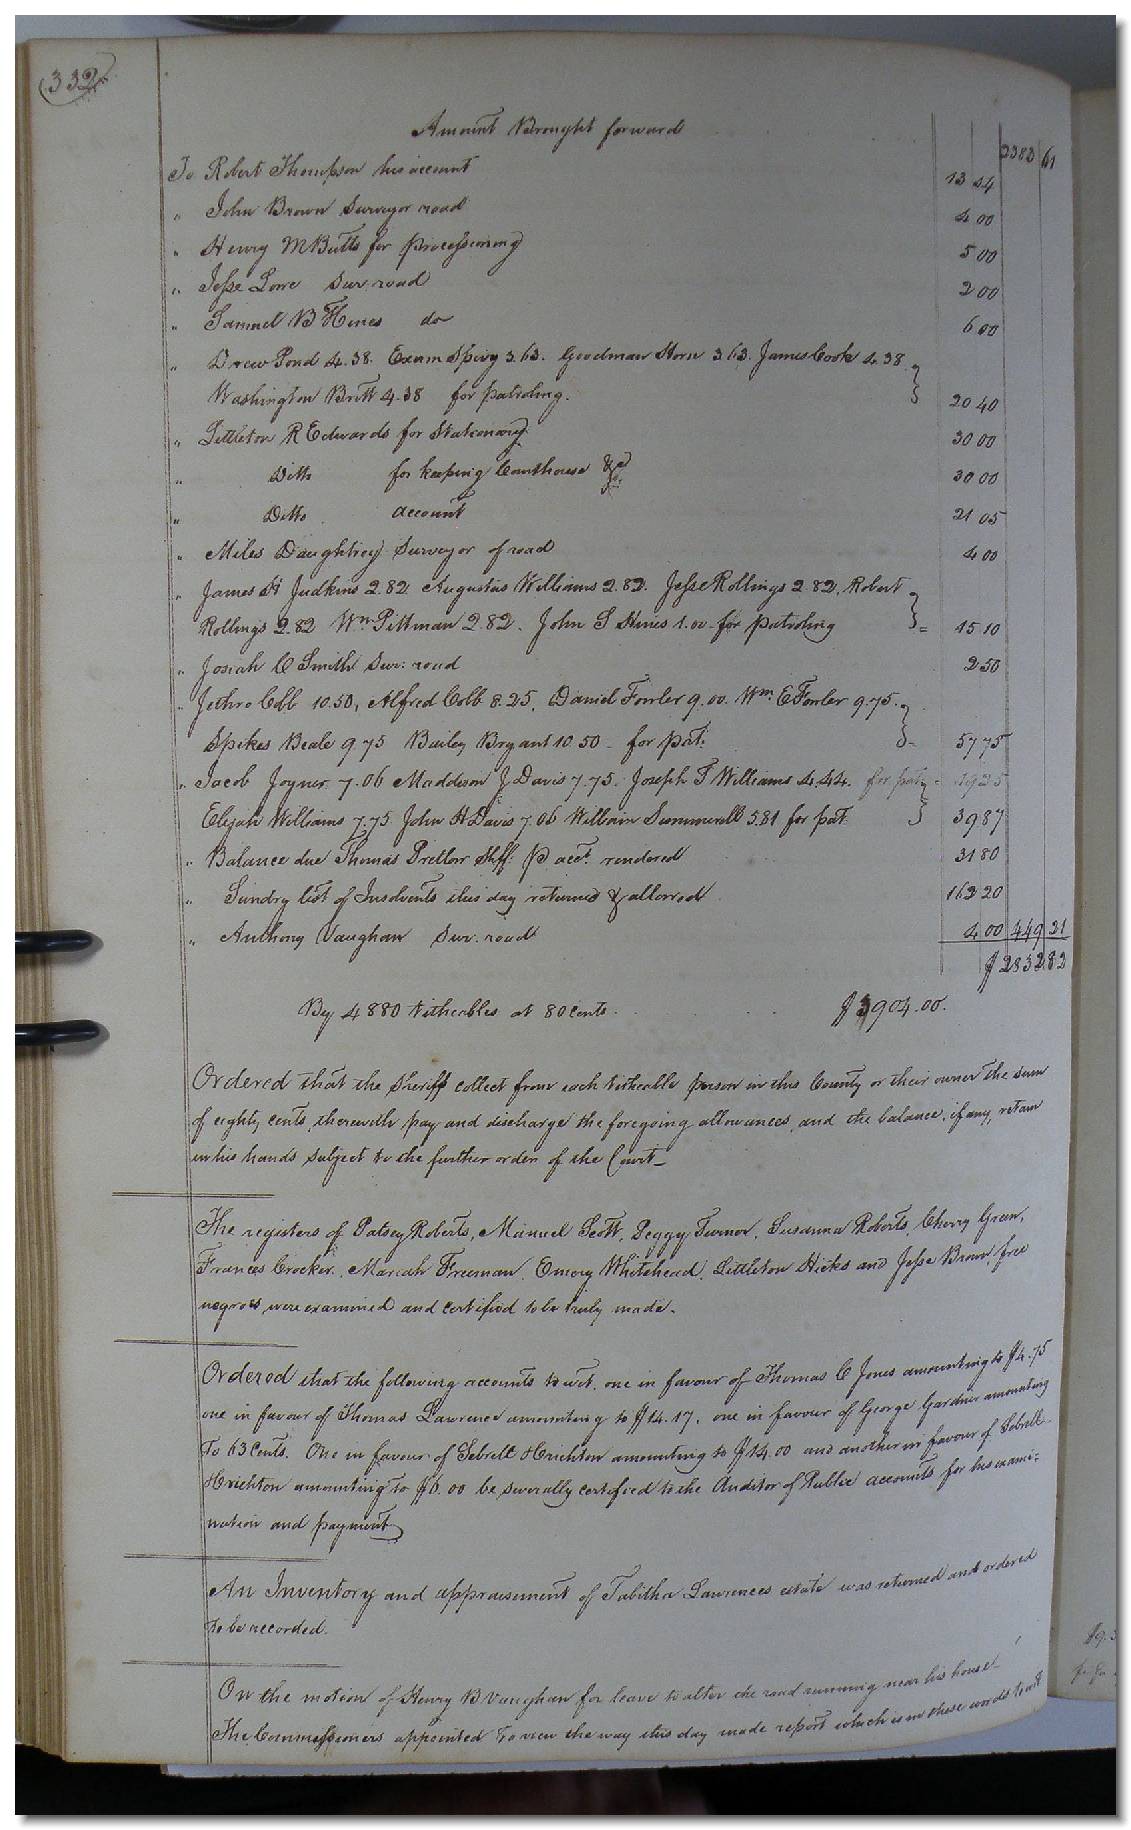 332
Amount Brought forward 2383 61
To Robert Thompson his account 13 54
" John Brown Surveyor road 4 00
" Henry M Butts for processioning 5 00
" Jesse Lowe Sur. road 2 00
" Samuel B Hines do 6 00
" Drew Pond 4.38. Exum Spivy 3.63. Goodman Horn 3.63. James Cook 4.38
Washington Britt 4.38 for patroling. 20 40
" Littleton R Edwards for Stationary. 30 00
" Ditto for keeping Courthouse &c 30 00
" Ditto account 21 05
" Miles Daughtrey Surveyor of road 4 00
" James H Judkins 2.82 Augustus Williams 2.82. Jesse Rollings 2.82. Robert
Rollings 2.82 Wm Pittman 2.82. John S Hines 1.00 for patroling = 15 10
" Josiah C Smith Sur: road 2 50
" Jethro Cobb 10.50, Alfred Cobb 8.25, Daniel Fowler 9.00. Wm E Fowler 9.75.
Spikes Beale 9.75 Bailey Bryant 10.50 - for pat: 57 75
" Jacob Joyner 7.06 Maddison J Davis 7.75. Joseph T Williams 4.44. for pat: 19 25
Elijah Williams 7.75 John H Davis 7.06 William Summerell 5.81 for pat 39 87
" Balance due Thomas Pretlow Shff: P acct. rendered 31 80
" Sundry list of Insolvents this day returned & allowed 162 20
" Anthony Vaughan Sur. road 4 00 449 21
$2832 82
By 4880 titheables at 80 cents. $3904.00.
Ordered that the Sheriff collect from each titheable person in this County or their owner the sum
of eighty cents, therewith pay and discharge the foregoing allowances, and the balance, if any, retain
in his hands subject to the further order of the Court_
The registers of Patsey Roberts, Manuel Scott, Peggy Turner, Susanna Roberts, Cherry Green,
Frances Crocker, Mariah Freeman, Emory Whitehead, Littleton Hicks and Jesse Brown, free
negroes were examined and certified to be truly made.
Ordered that the following accounts to wit, one in favour of Thomas C Jones amounting to $4.75
one in favour of Thomas Lawrence amounting to $14.17, one in favour of George Gardner amounting
To 63 Cents. One in favour of Sebrell amounting to $14.00 and another in favour of Sebrell
amounting to $6.00 be severally certified to the Auditor of Public accounts for his exami=
nation and payment
An Inventory and appraisement of Tabitha Lawrences estate was returned and ordered
to be recorded.
On the motion of Henry B Vaughan for leave to alter the road running near his house_
The Commissioners appointed to view the way this day made report which is in these words to wit
$9.3